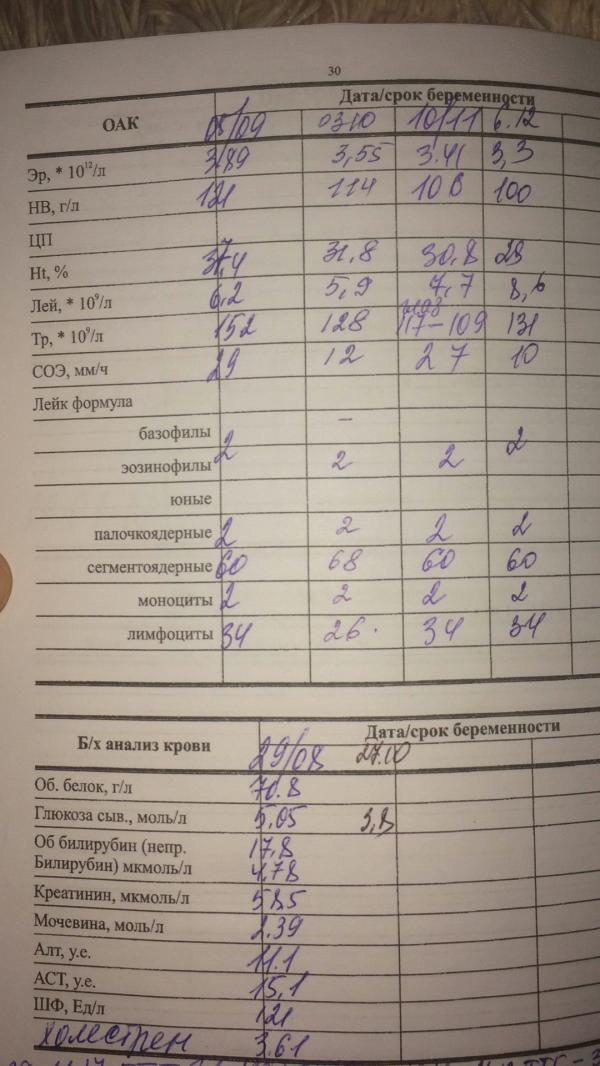 30
Дата/срок беременности
ОАК 05/09 03.10 10/11 6.12
Эр, * 10¹²/л 3,89 3,55 3.41 3,3
НВ, г/л 121 114 100
ЦП
Ht, % 37,4 31,8 30,8 29
Лей, * 10⁹/л 6,2 5,9 7,7 8,6
Тр, * 10⁹/л 152 128 117-109 131
СОЭ, мм/ч 29 12 27 10
Лейк формула
базофилы –
эозинофилы 2 2 2 2
юные
палочкоядерные 2 2 2 2
сегментоядерные 60 68 60 60
моноциты 2 2 2 2
лимфоциты 34 26. 34 34
Дата/срок беременности
Б/х анализ крови 29/08 27.10
Об. белок, г/л 70.8
Глюкоза сыв., моль/л 5,05 3,8
Об билирубин (непр. 17,8
Билирубин) мкмоль/л 4,78
Креатинин, мкмоль/л 58.5
Мочевина, моль/л 2.39
Алт, у.е. 11.1
АСТ, у.е. 15,1
ШФ, Ед/л 121
холестрен 3.61